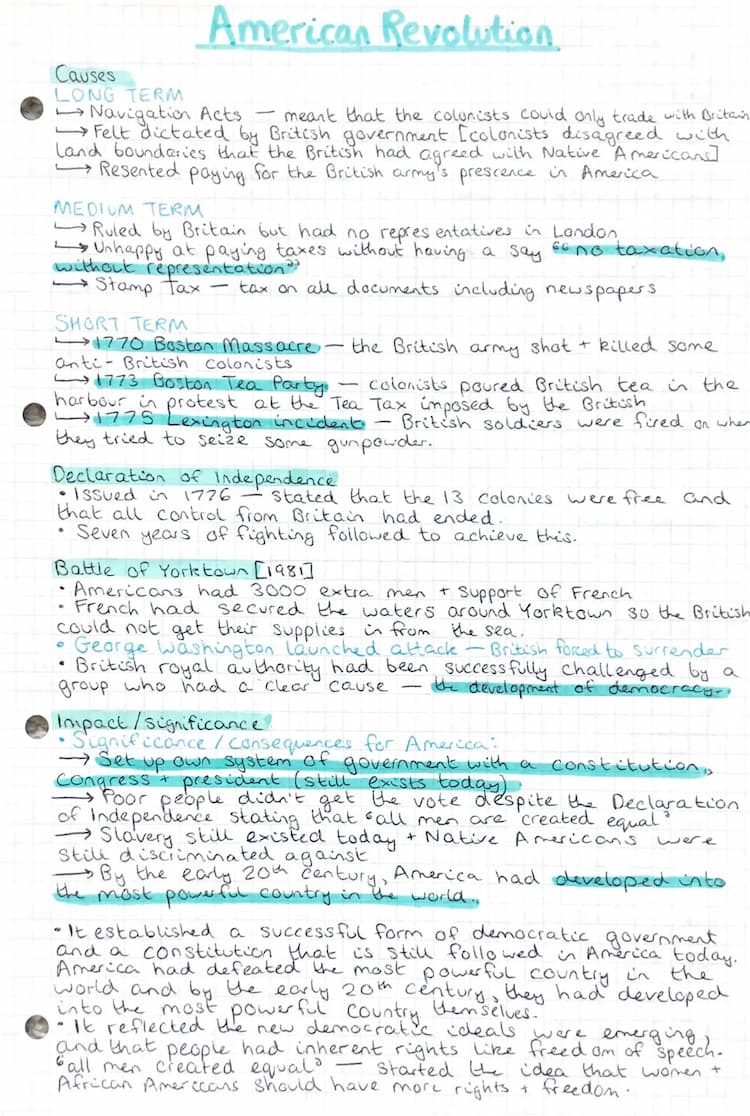 American Revolution
Causes
LONG TERM
↳ Navigation Acts — meant that the colonists could only trade with Britain
↳ Felt dictated by British government [colonists disagreed with
land boundaries that the British had agreed with Native Americans]
↳ Resented paying for the British army's prescence in America
MEDIUM TERM
↳ Ruled by Britain but had no representatives in London
↳ Unhappy at paying taxes without having a say "no taxation,
without representation"
↳ Stamp Tax — tax on all documents including newspapers
SHORT TERM
↳ 1770 Boston Massacre — the British army shot + killed some
anti-British colonists
↳ 1773 Boston Tea Party — colonists poured British tea in the
harbour in protest at the Tea Tax imposed by the British
↳ 1775 Lexington incident — British soldiers were fired on when
they tried to seize some gunpowder.
Declaration of Independence
• Issued in 1776 — stated that the 13 colonies were free and
that all control from Britain had ended.
• Seven years of fighting followed to achieve this.
Battle of Yorktown [1981]
• Americans had 3000 extra men + support of French
• French had secured the waters around Yorktown so the British
could not get their supplies in from the sea.
• George Washington launched attack — British forced to surrender
• British royal authority had been successfully challenged by a
group who had a clear cause — the development of democracy.
Impact/significance
• Significance/consequences for America:
→ Set up own system of government with a constitution,
congress + president (still exists today)
→ Poor people didn't get the vote despite the Declaration
of Independence stating that "all men are created equal"
→ Slavery still existed today + Native Americans were
still discriminated against
→ By the early 20th century, America had developed into
the most powerful country in the world.
• It established a successful form of democratic government
and a constitution that is still followed in America today.
America had defeated the most powerful country in the
world and by the early 20th century, they had developed
into the most powerful country themselves.
• It reflected the new democratic ideals were emerging,
and that people had inherent rights like freedom of speech.
"all men created equal" — started the idea that women +
African Americans should have more rights + freedom.